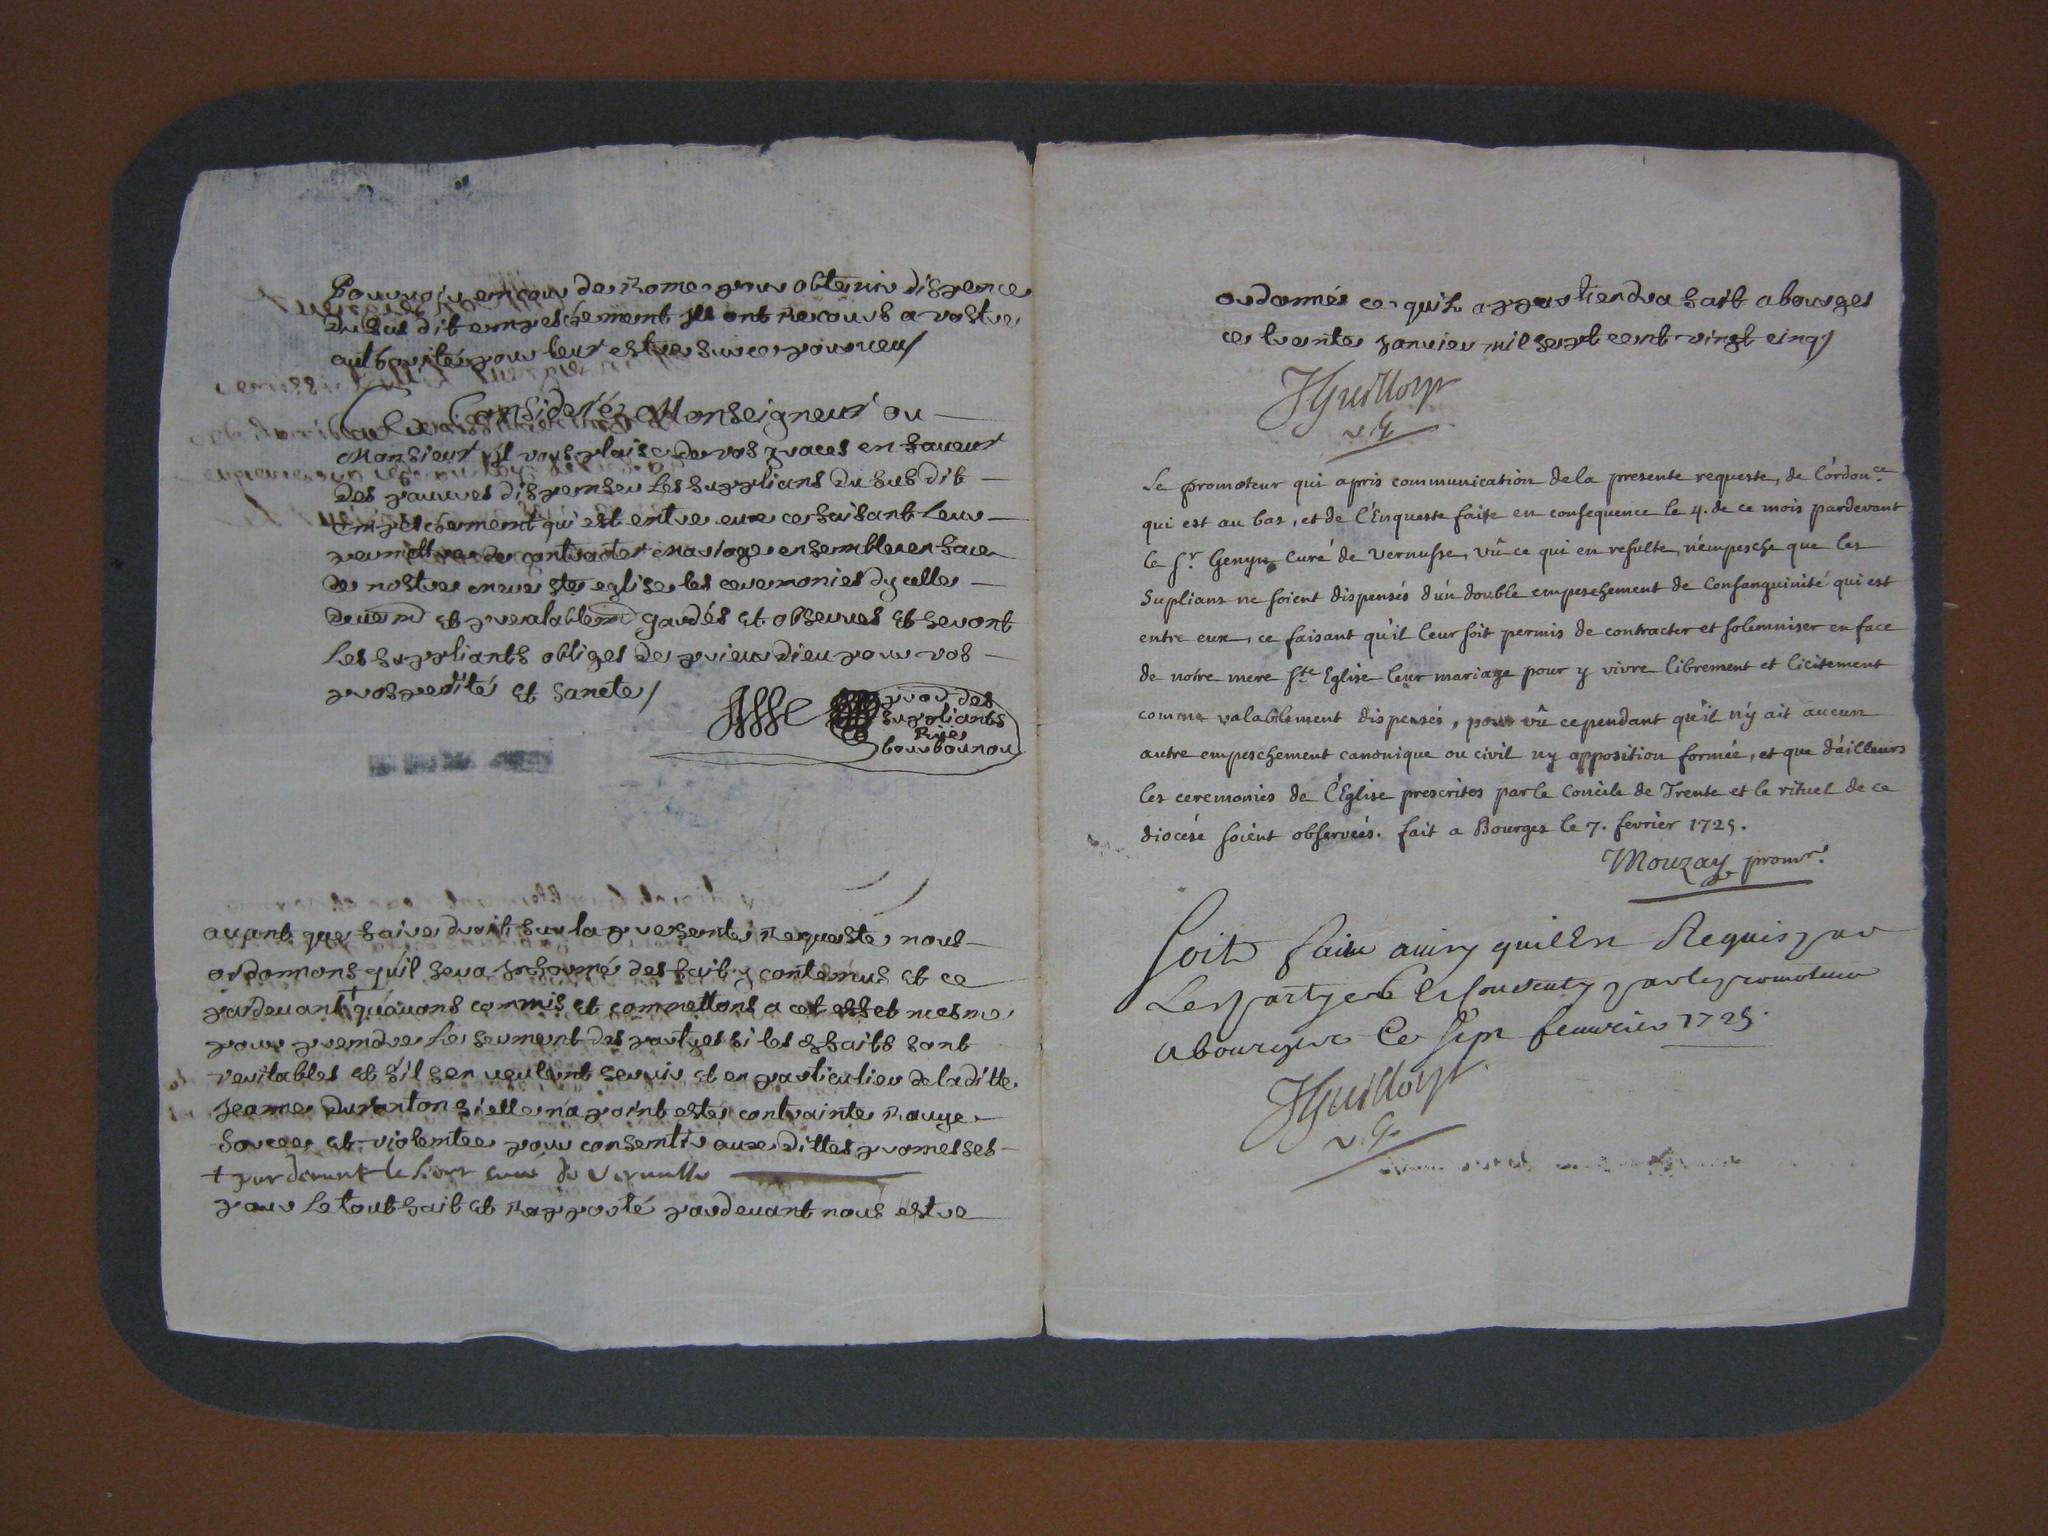 Pouuoir en cour de Rome pour obtenir dispence
du sus dit empeschement Ils ont Recours a vostre
authorité pour leur estre sur ce pourueu /
Ce Consideré Monseigneur ou
Monsieur il vous plaise de vos graces en faueur
des pauures dispenser les supplians du sus dit
empeschement qui est entre eux ce faisant leur
permettre de contracter mariage ensemble en face
de nostre mere ste eglise les ceremonies dycelle
deuemt et prealablemt gardés et obserues et seront
les suppliants obligés de prier dieu pour vos
prosperité et sancte /
proc des
suppliants
Rüe
bourbounou
auant que faire droit sur la presente Requeste nous
ordonnons qu'il sera Informé des fait y contenus et ce
pardeuant + qu'auons commis et commettons a cet effet mesme
pour prendre le serment des partyes si les faits sont
veritables et s'il s'en veulent seruir et en particulier de laditte
Jeanne Duranton si elle n'a point esté contrainte Rauye
forcee et violentee pour consentir aux dittes promesses
+ par devant le sieur curé de Vernusse
pour le tout fait et Rapporté pardeuant nous estre
ordonné ce quil appartiendra fait a bourges
ce trente Janvier mil sept cent vingt cinq /
JGuilloyn
v.g.
Le promoteur qui a pris communication de la presente requeste, de l'ordonce
qui est au bas, et de l'Enqueste faite en consequence le 4. de ce mois pardevant
le Sr Genyn Curé de vernusse, vû ce qui en resulte, n'empesche que les
Suplians ne soient dispensés d'un double empeschement de Consanguinité qui est
entre eux, ce faisant qu'il leur soit permis de contracter et solemniser en face
de notre mere Ste Eglise leur mariage pour y vivre librement et licitement
comme valablement dispensés, pour vû cependant qu'il n'y ait aucun
autre empeschement canonique ou civil ny opposition formée, et que d'ailleurs
les ceremonies de l'Eglise prescrites par le Concile de Trente et le rituel de ce
diocése soient observeés. fait a Bourges le 7. fevrier 1725.
Mouzay promr.
Soit faitte ainsy quil est Requis par
Les partyes et consenty par le promoteur
a bourges ce sept feuurier 1725.
JGuilloyn
v.g.